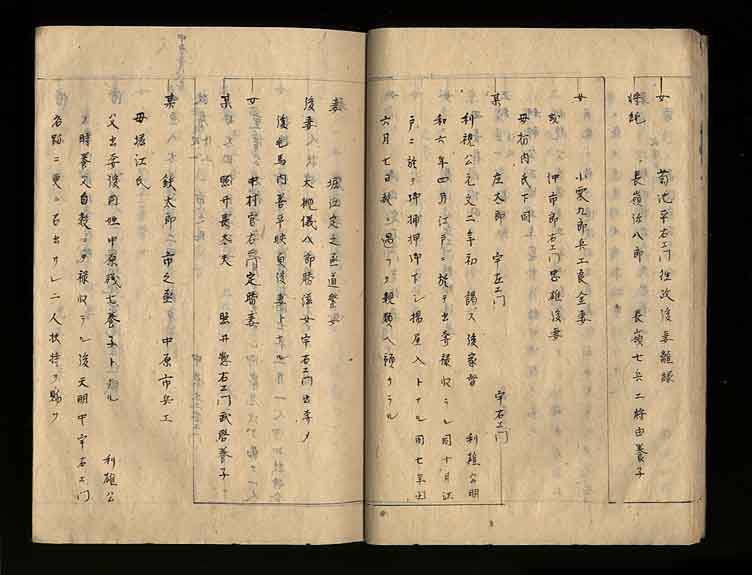 女 菊池平右エ門 後妻離縁
将純 長嶺弥八郎 長嶺七兵エ将由養子
女 小栗九郎兵エ良金妻
女 沖市郎右エ門忠雄後妻
母栃内氏下同
某 庄太郎 宇左エ門 宇右エ門
利視公元文二年初謁ス後家督 利雄公明
和六年四月江戸ニ於テ出奔禄収ラル同十月江
戸ニ於テ 揚屋入トナル同七年
六月七日赦ニ遇フテ親類ヘ預ケラル
妻 堀江定之丞道 女
後妻 大槻儀八郎勝 女宇右エ門出奔ノ
後毛馬内善平映貞後妻トナル
女 中村官右エ門定勝妻
某 照井喜太夫 照井惣右エ門武啓養子
某 鉄太郎 市之丞 中原市兵エ
母堀江氏
父出奔後同姓中原 七養子ト ル 利雄公
ノ時養父自殺シテ禄収ラル後天明中宇右エ門
名跡ニ更ニ召出サレ二人扶持ヲ賜フ